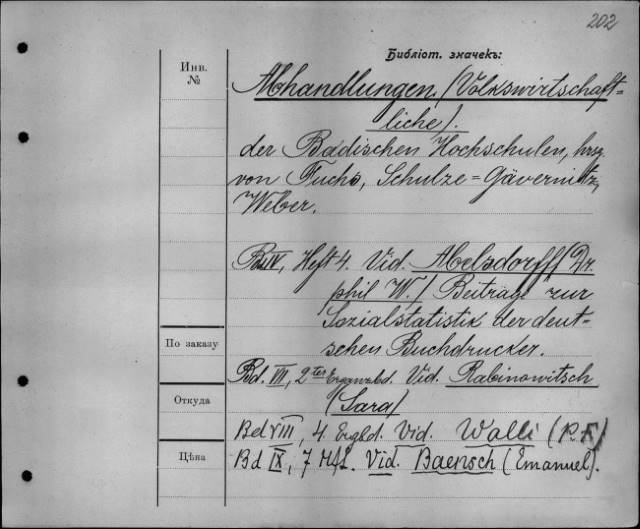 202
Библіот. значекъ:
Инв.
№
Abhandlungen, (Volkswirtschaft=
liche).
der Badischen Hochschulen, hrsg.
von Fuchs, Schulze=Gävernitz,
Weber.
Bd IV, Heft 4. Vid. Abelsdorff (Dr.
phil W.) Beiträge zur
Sozialstatistik der deut-
schen Buchdrucker.
По заказу
Bd. VII, 2ter Ergänzbd. Vid. Rabinowitsch
(Sara)
Откуда
Bd VIII, 4. Ergbd. Vid. Walli (P. F.)
Цѣна
Bd IX, 7 Hft. Vid. Baensch (Emanuel).